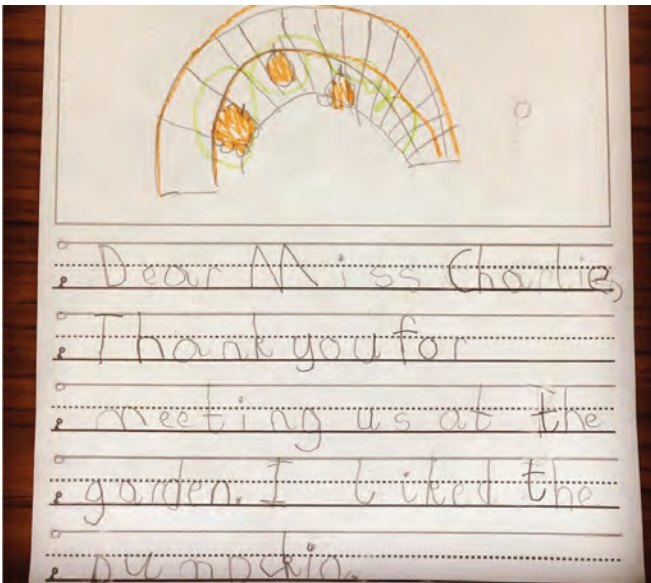 Dear Miss Charlie,
Thank you for
meeting us at the
garden. I liked the
pumpckin.